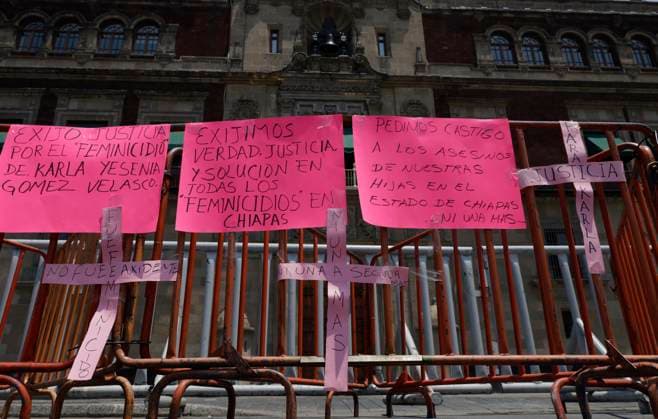 EXIJO JUSTICIA
POR EL "FEMINICIDIO
DE KARLA YESENIA
GOMEZ VELASCO.
EXIJIMOS
VERDAD, JUSTICIA
Y SOLUCION EN
TODAS LOS
"FEMINICIDIOS" EN
CHIAPAS
PEDIMOS CASTIGO
A LOS ASESINOS
DE NUESTRAS
HIJAS EN EL
ESTADO DE CHIAPAS
..NI UNA MAS..
NO FUE AXIDENTE
NI UNA MAS
JUSTICIA
KARLA